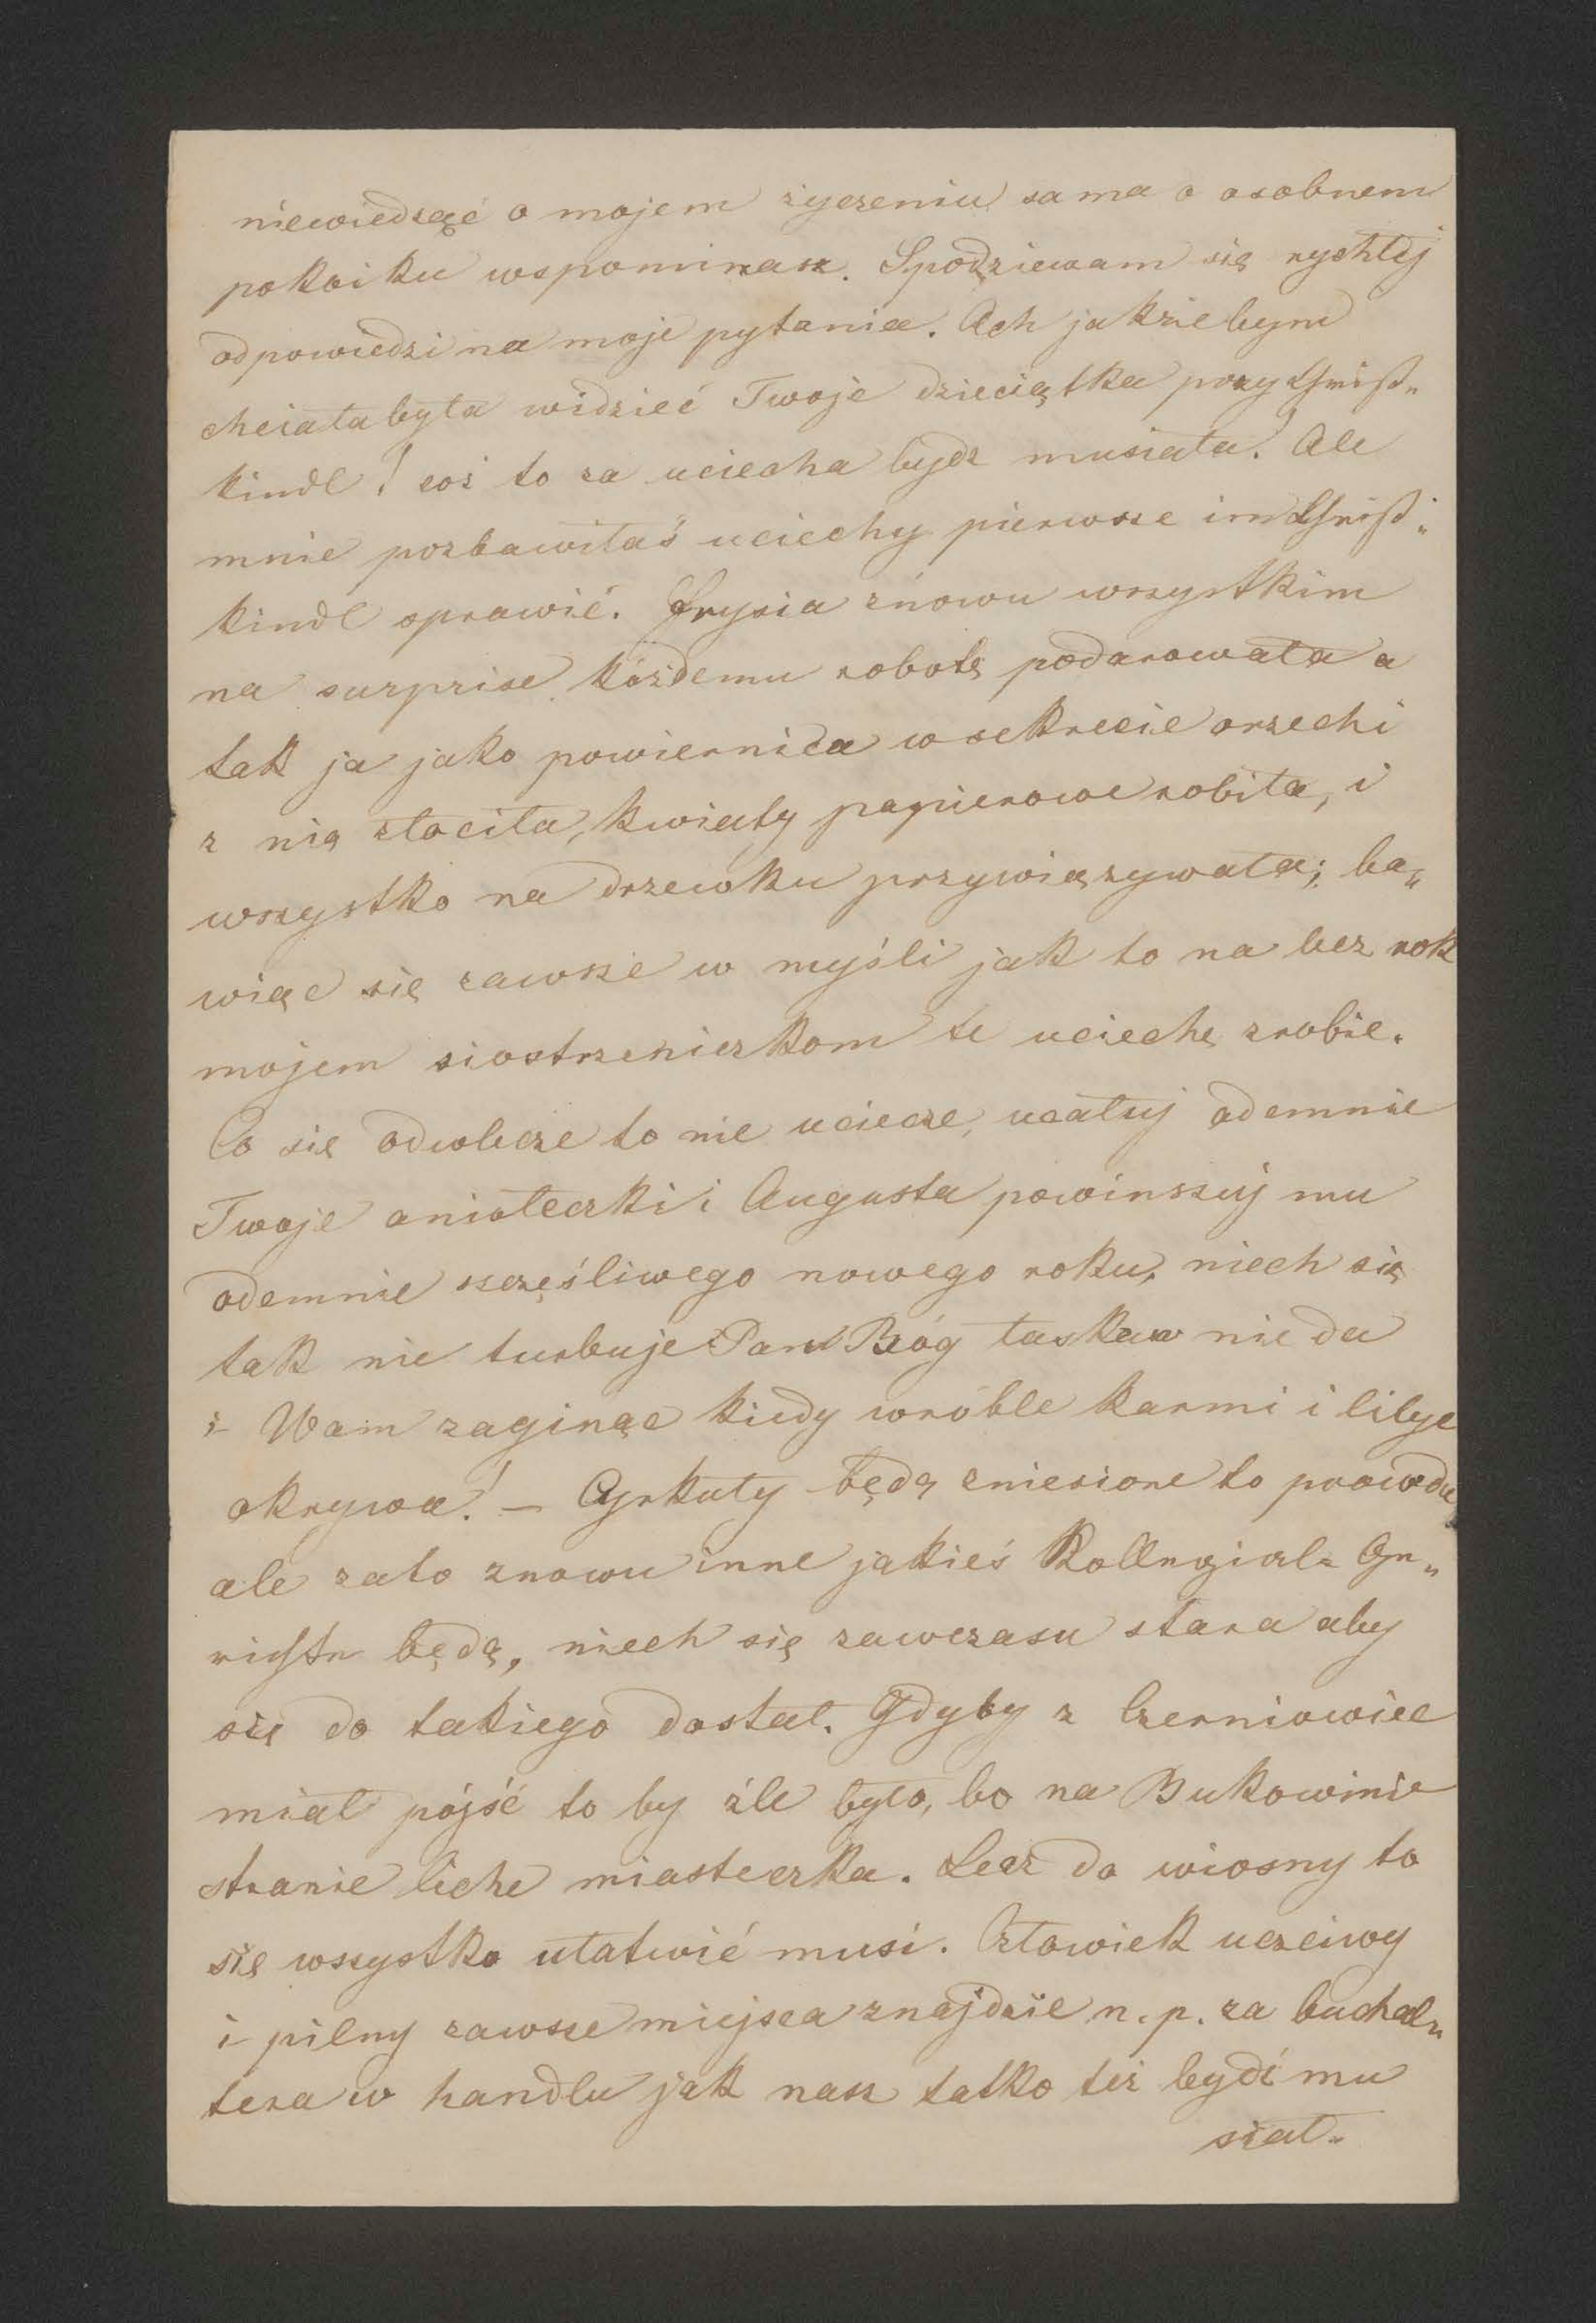 niewiedząć o mojem życzeniu sama o osobnem
pokoiku wspominasz. Spodziewam się rychłej
odpowiedzi na moje pytania. Ach jakżebym
chciałabyła widzieć Twoje dzieciątka przy Christ„
kindl! coż to za uciecha bydź musiała! Ale
mnie pozbawiłaś uciechy pierwsze im Christ„
kindl sprawić. Frysia znowu wszystkim
na surprise kóżdemu robotę podarowała a
tak ja jako powiernica w sekrecie orzechi
z nią złociła, kwiaty papierowe robiła, i
wszystko na drzewku przywiązywała; ba„
wiąc się zawsze w myśli jak to na bez rok
mojem siostrzeniczkom te uciechę zrobie.
Co się odwlecze to nie uciecze, ucałuj odemnie
Twoje aniołeczki i Augusta powinszuj mu
odemnie szczęśliwego nowego roku, niech się
tak nie turbuje Pan Bóg łaskaw nie da
i Wam zaginąc kiedy wróble karmi i lilye
okrywa! — Cyrkuły będą zniesione to prawda
ale zato znowu inne jakieś Kollegial= Ge„
richte będą, niech się zawczasu stara aby
się do takiego dostał. Gdyby z Czerniowiec
miał pójść to by źle było, bo na Bukowinie
stranie liche miasteczka. Lecz do wiosny to
się wszystko ułatwić musi. Człowiek uczciwy
i pilny zawsze miejsca znajdzie n. p. za buchal„
tera w handlu jak nasz tatko też bydź mu
siał.